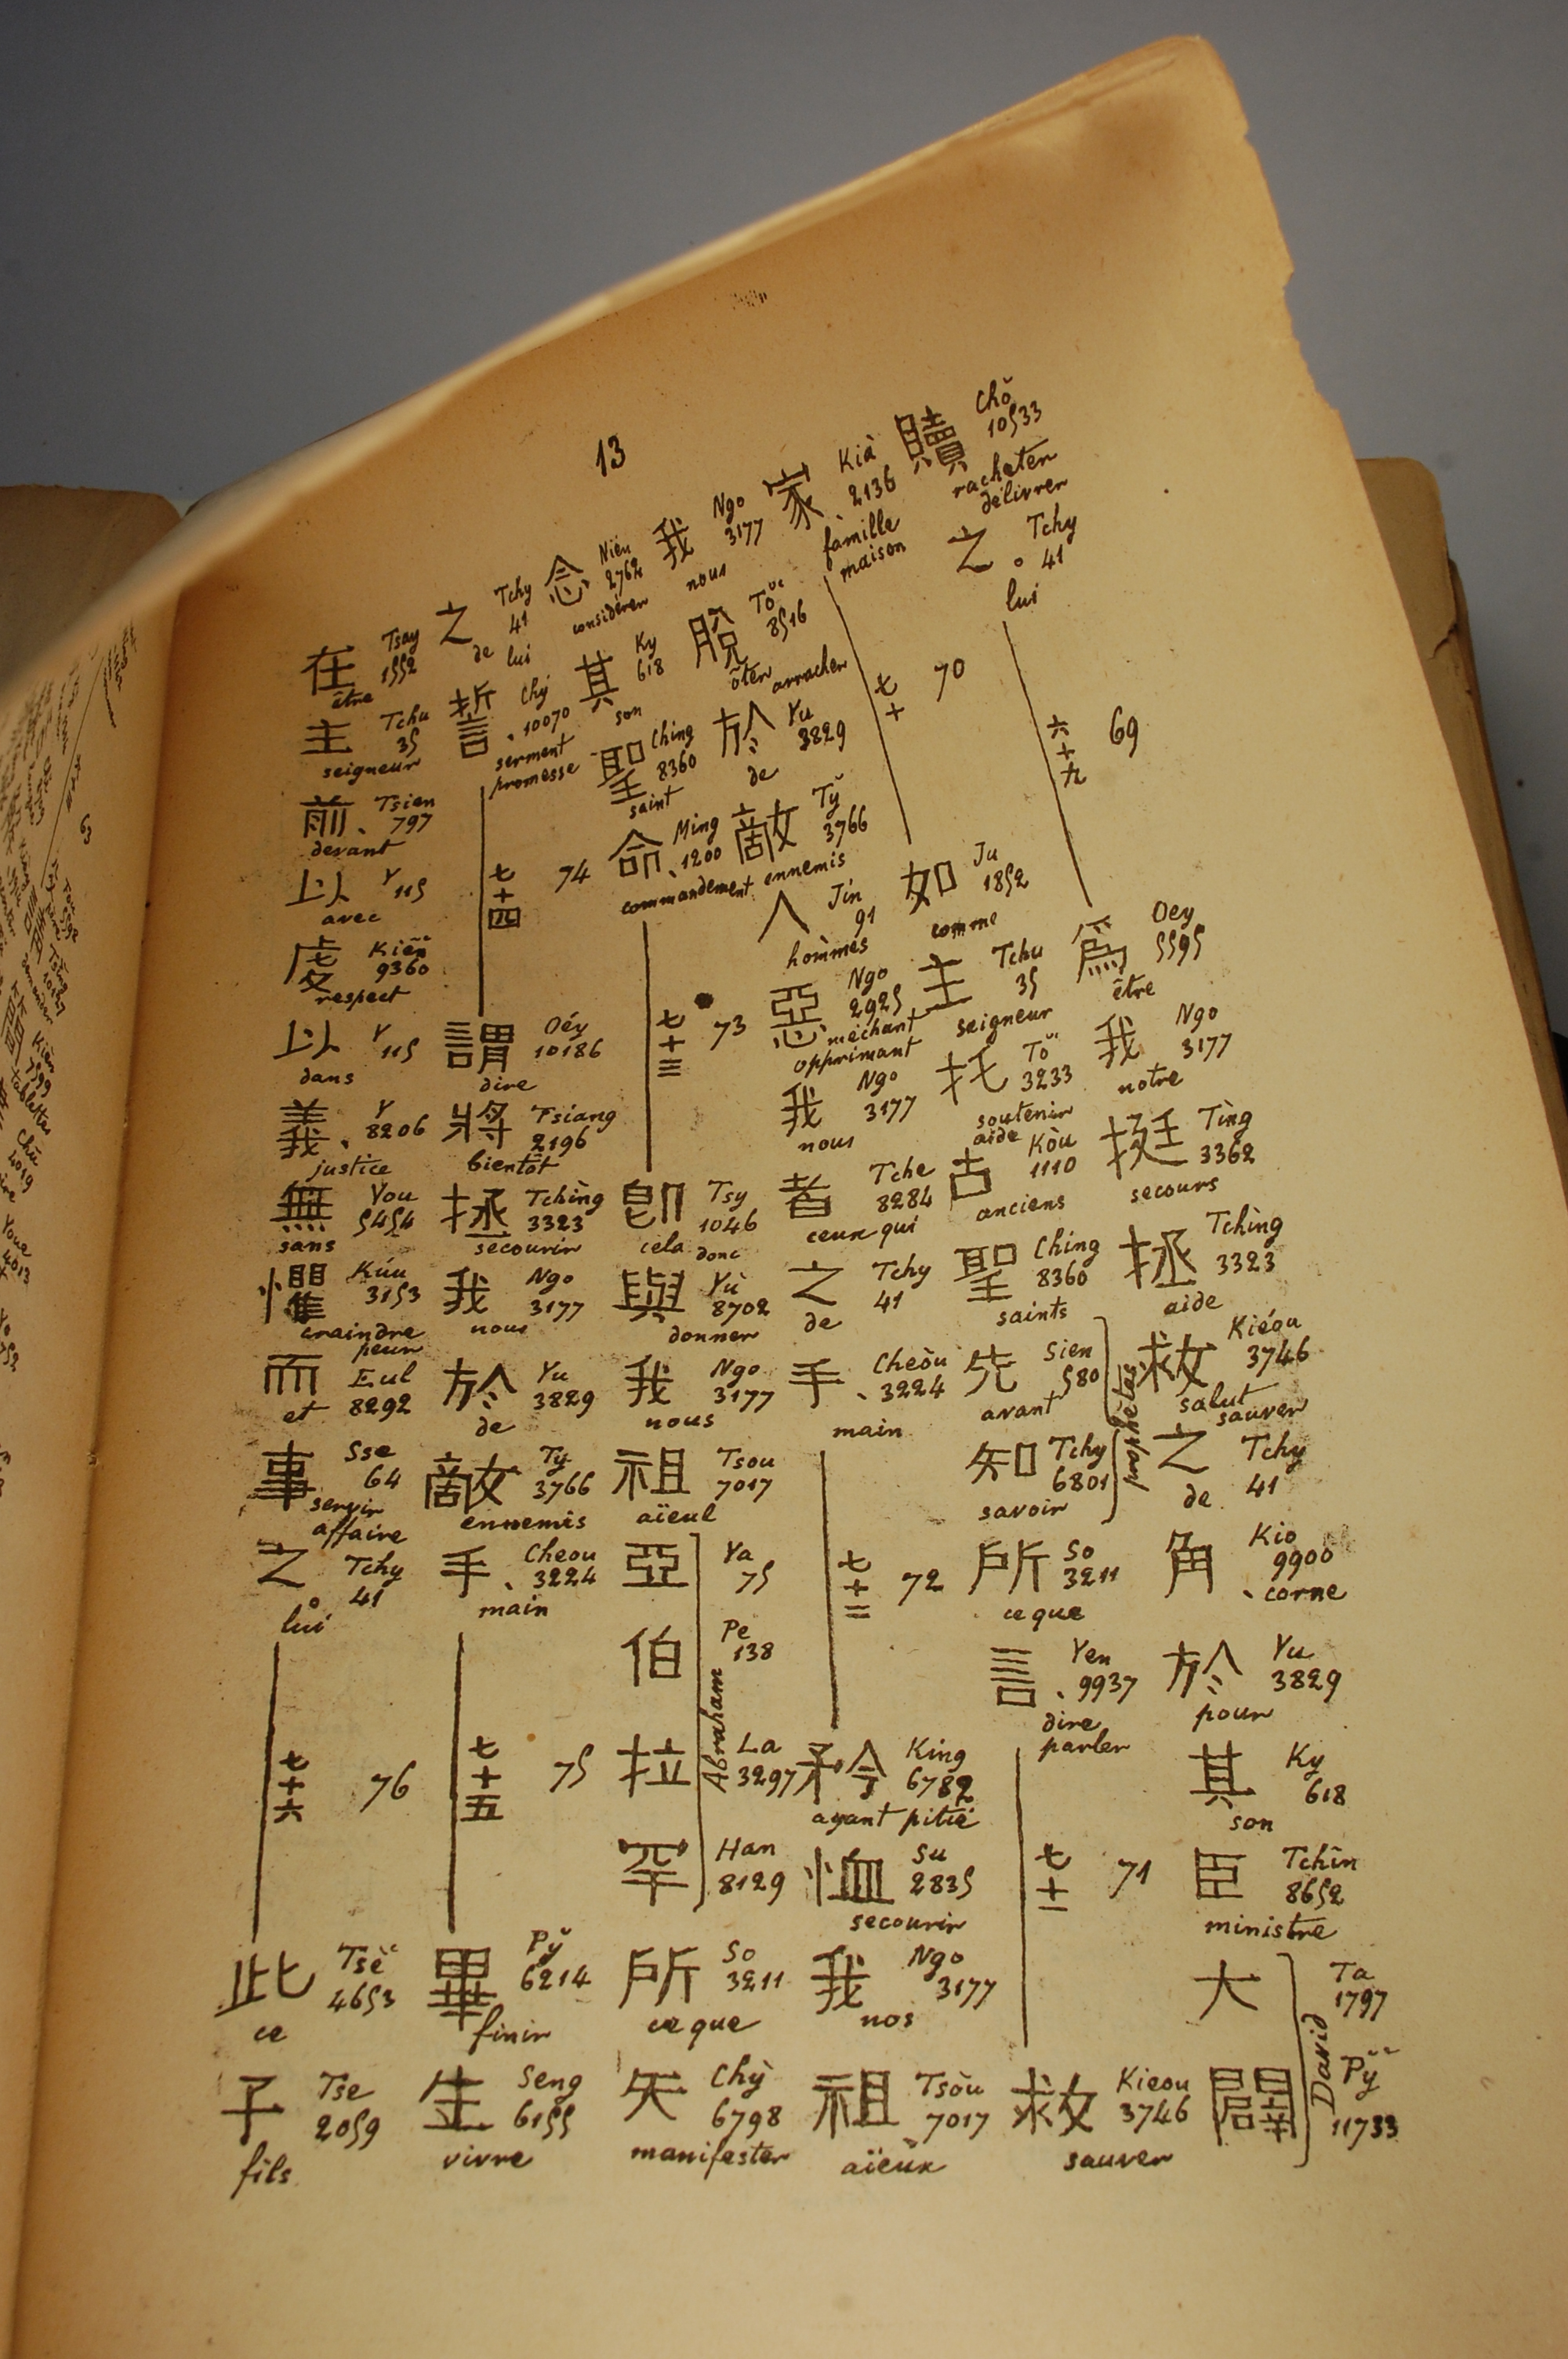 13
贖 Chŏ 10533 racheter délivrer
之 。 Tchy 41 lui
六十九 69
爲 Oey 5595 être
我 Ngo 3177 notre
挺 Tìng 3362 secours
拯 Tchìng 3323 aide
救 Kiéou 3746 salut sauver
之 Tchy 41 de
角 、 Kio 9900 corne
於 Yu 3829 pour
其 Ky 618 son
臣 Tchîn 8652 ministre
大 Ta 1797
闢 Pỹ 11733
David
家 、 Kià 2136 famille maison
七十 70
如 Ju 1852 comme
主 Tchu 35 seigneur
托 Tŏ 3233 soutenir aide
古 Kòu 1110 anciens
聖 Ching 8360 saints
先 Sien 580 avant
知 Tchy 6801 savoir
prophètes
所 So 3211 ce que
言 、 Yen 9937 dire parler
七十一 71
救 Kieou 3746 sauver
我 Ngo 3177 nous
脫 Tŏ 8516 ôter arracher
於 Yu 3829 de
敵 Tỹ 3766 ennemis
人 Jin 91 hommes
惡 Ngo 2925 méchant opprimant
我 Ngo 3177 nous
者 Tche 8284 ceux qui
之 Tchy 41 de
手 、 Cheòu 3224 main
七十二 72
矜 King 6782 ayant pitié
恤 Su 2835 secourir
我 Ngo 3177 nos
祖 Tsòu 7017 aïeux
念 Nién 2762 considérer
其 Ky 618 son
聖 Ching 8360 saint
命 、 Ming 1200 commandement
七十三 73
卽 Tsy 1046 cela donc
與 Yù 8702 donner
我 Ngo 3177 nous
祖 Tsou 7017 aïeul
亞 Ya 75
伯 Pe 138
拉 La 3297
罕 Han 8129
Abraham
所 So 3211 ce que
矢 Chỳ 6798 manifester
之 Tchy 41 de lui
誓 、 Chý 10070 serment promesse
七十四 74
謂 Oéy 10186 dire
將 Tsiang 2196 bientôt
拯 Tchìng 3323 secourir
我 Ngo 3177 nous
於 Yu 3829 de
敵 Tỹ 3766 ennemis
手 、 Cheou 3224 main
七十五 75
畢 Pỹ 6214 finir
生 Seng 6155 vivre
在 Tsay 1552 être
主 Tchu 35 seigneur
前 、 Tsien 797 devant
以 Y 115 avec
虔 Kiên 9360 respect
以 Y 115 dans
義 、 Y 8206 justice
無 Vou 5454 sans
懼 Kúu 3153 craindre peur
而 Eul 8292 et
事 Sse 64 servir affaire
之 。 Tchy 41 lui
七十六 76
此 Tsè 4653 ce
子 Tse 2059 fils